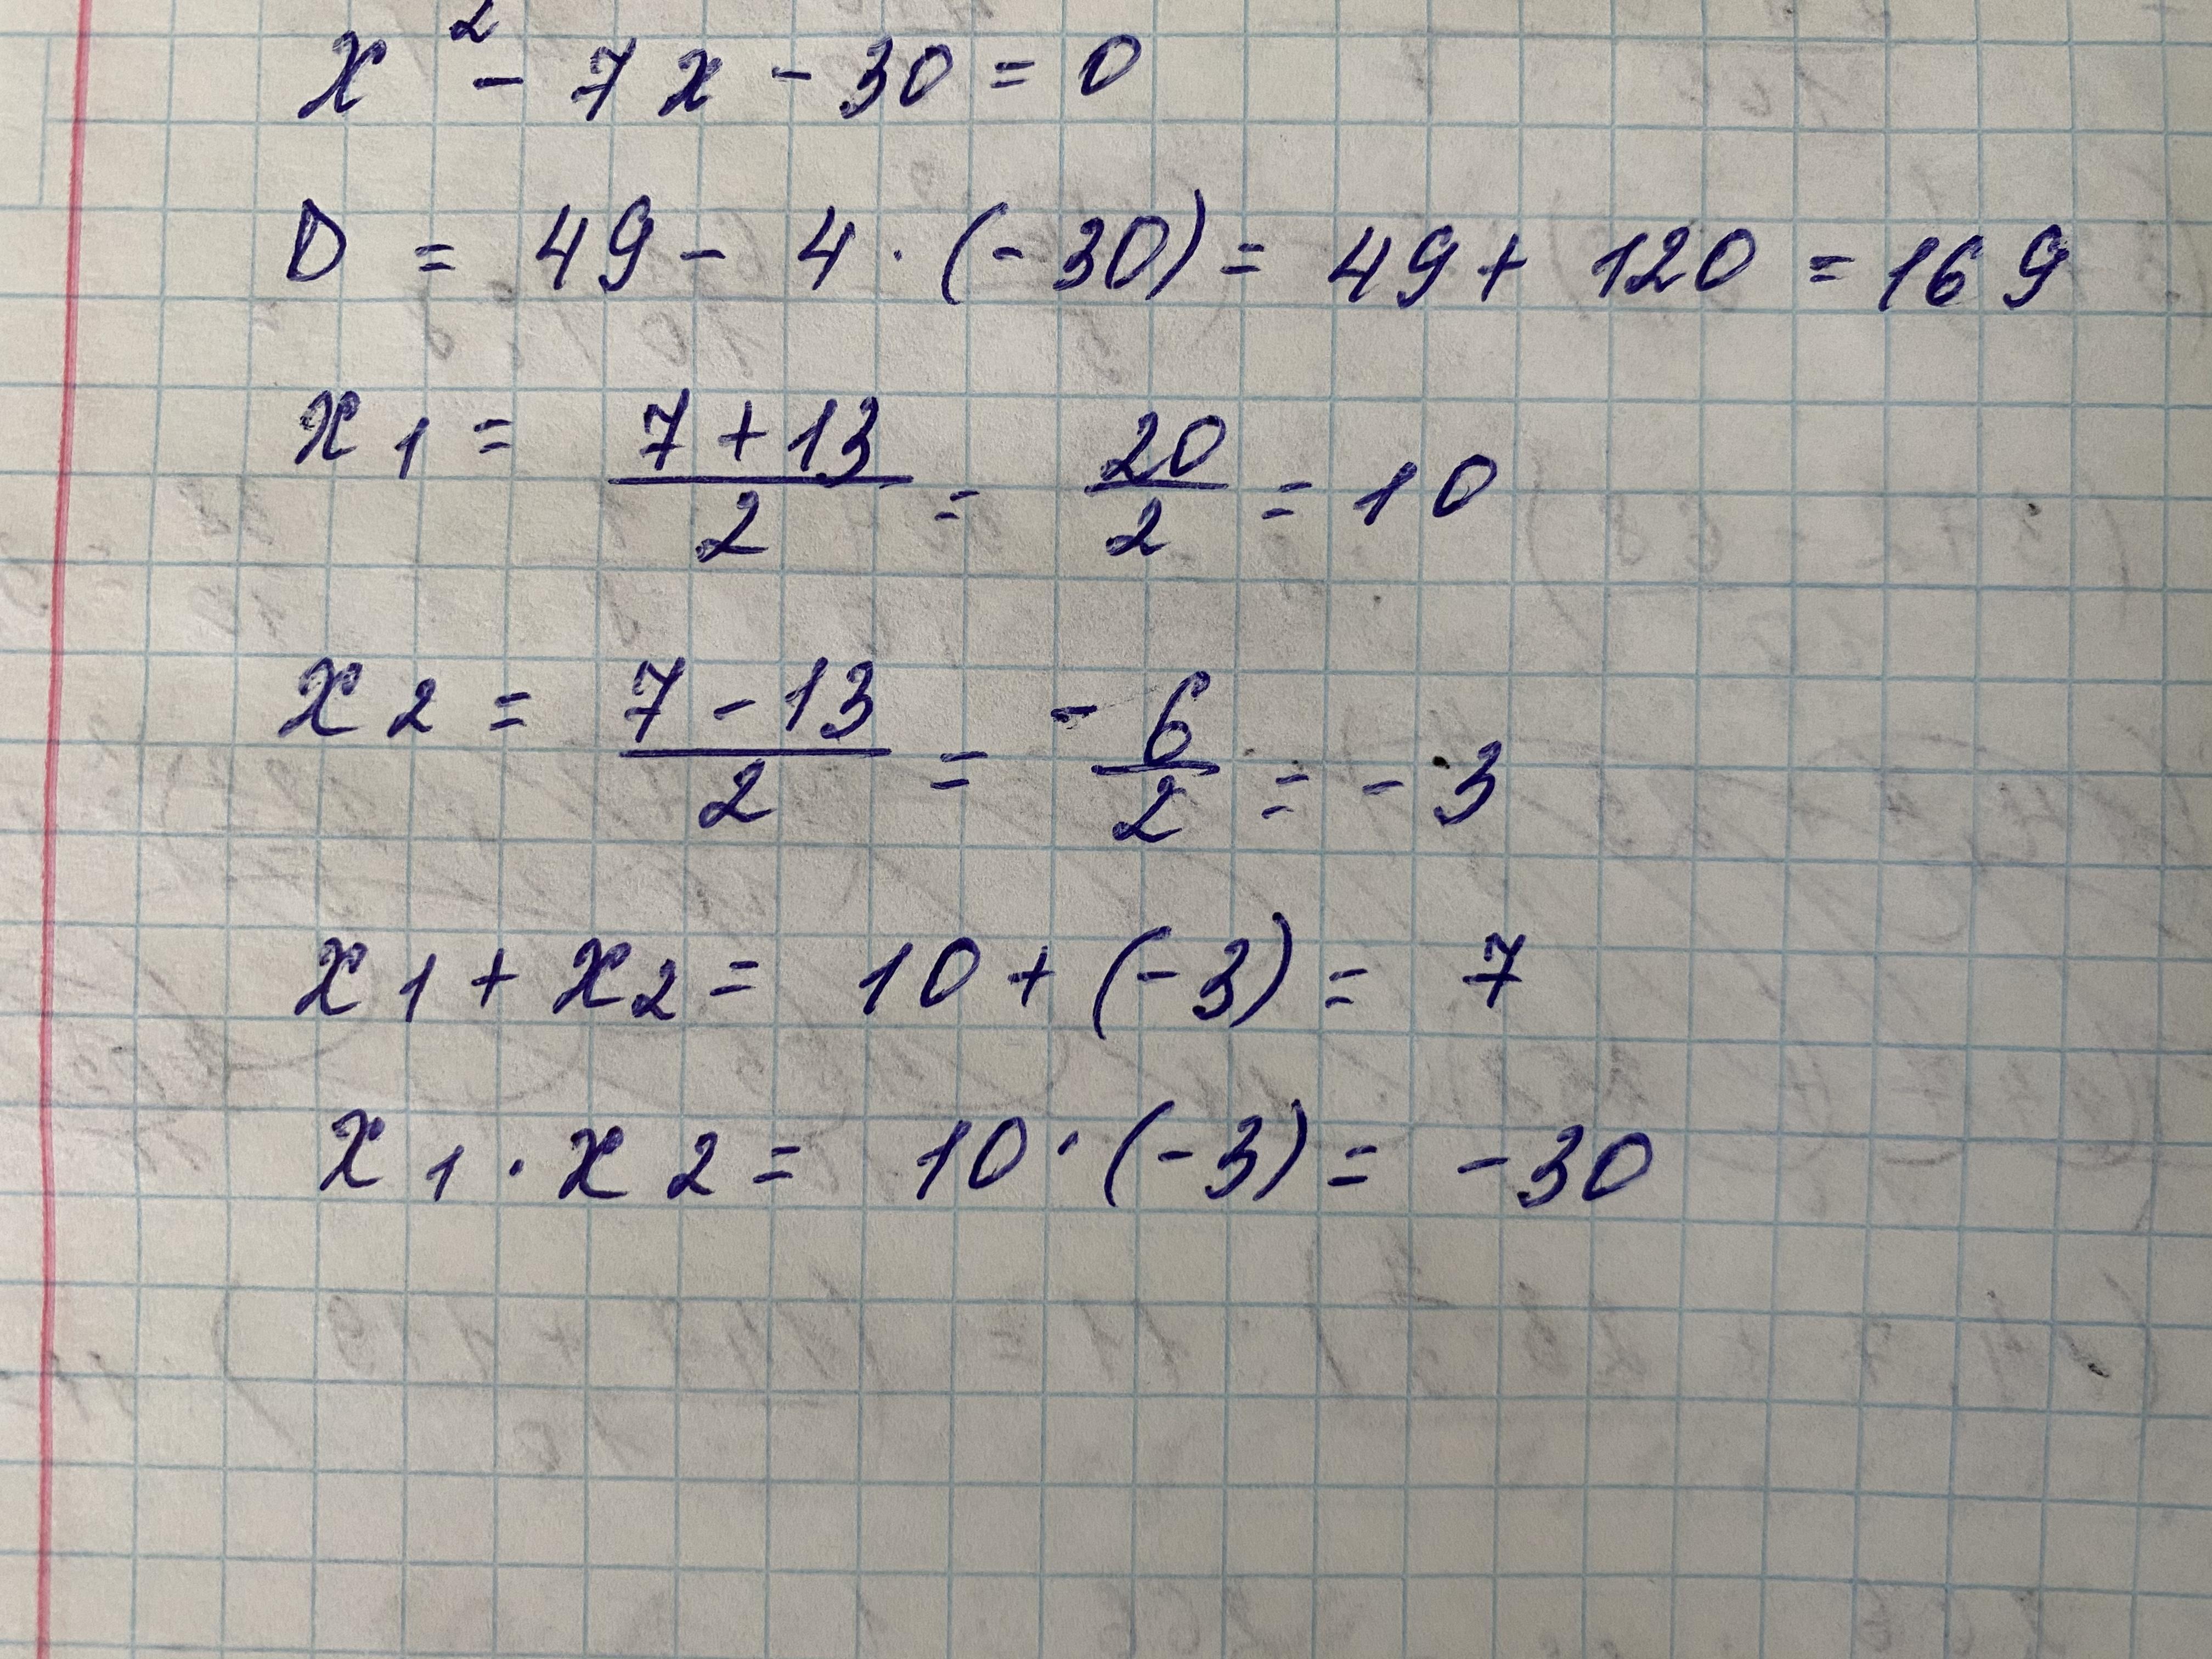 x² - 7x - 30 = 0
D = 49 - 4 · (-30) = 49 + 120 = 169
x1 = (7 + 13)/2 = 20/2 = 10
x2 = (7 - 13)/2 = -6/2 = -3
x1 + x2 = 10 + (-3) = 7
x1 · x2 = 10 · (-3) = -30